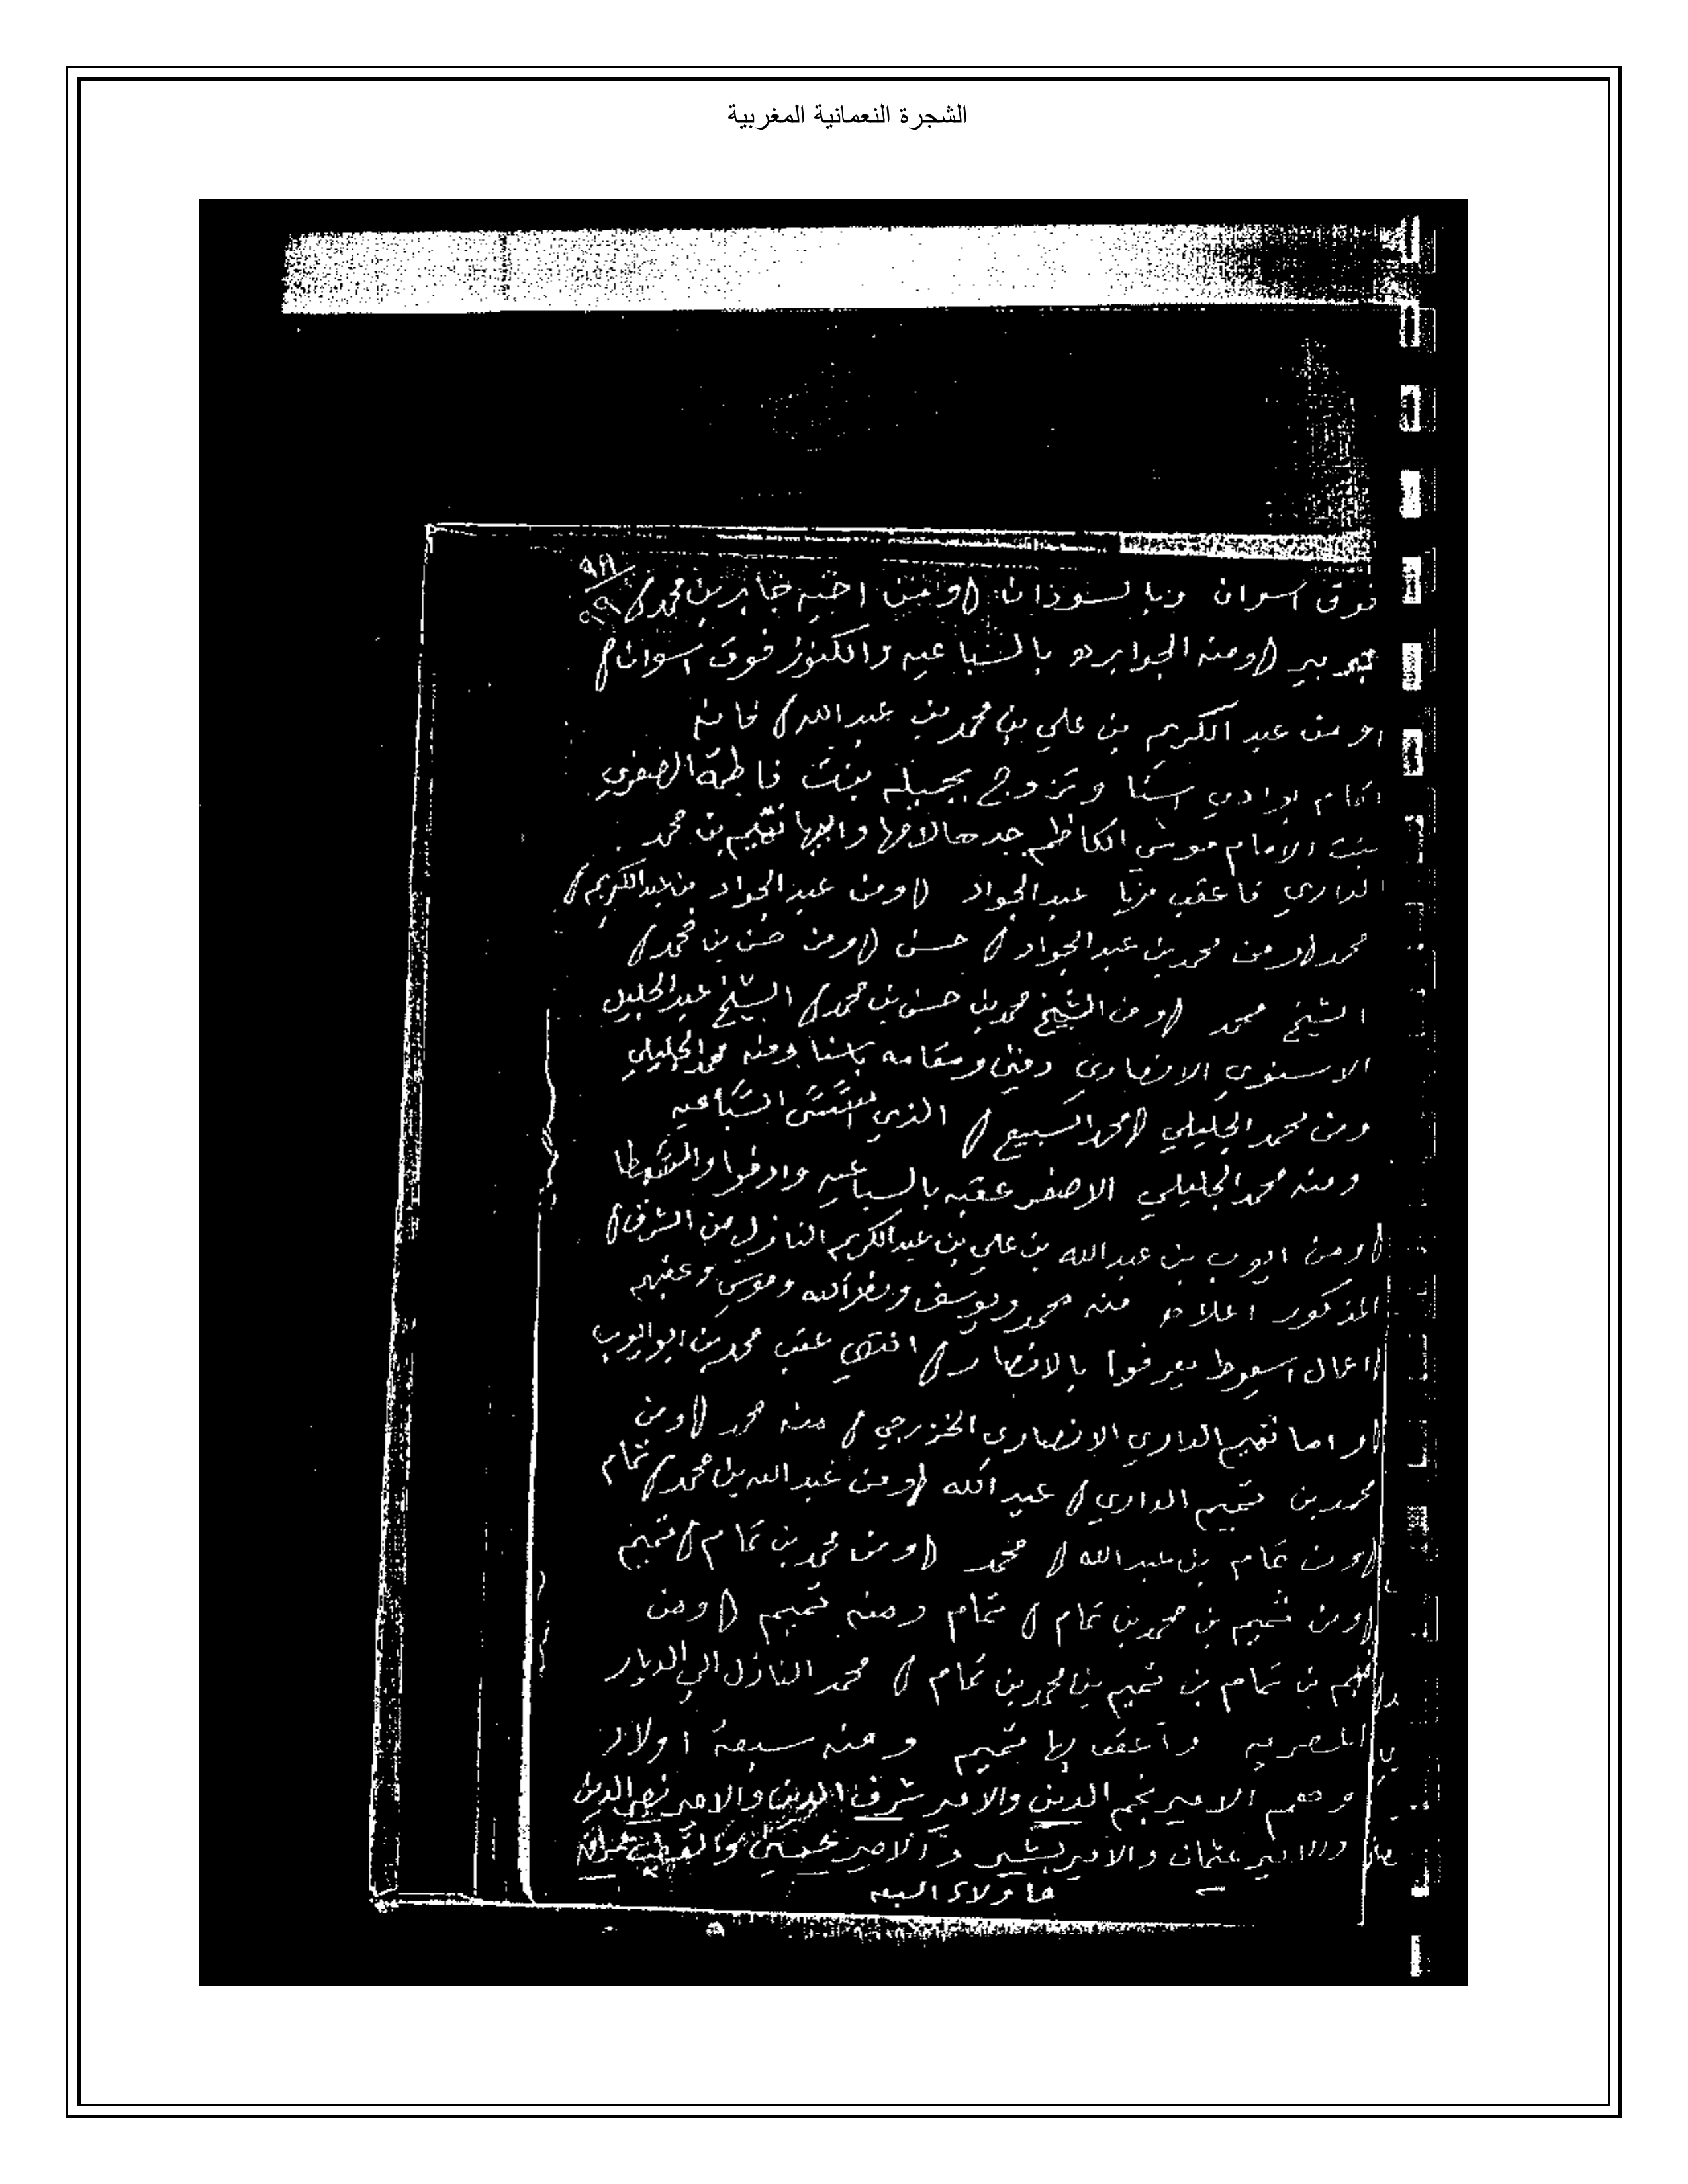 الشجرة النعمانية المغربية
٩٨
٩٩
فوق اسوان وبالسودان (ومن اخيه جابر بن محمد)
(ومنه الجوابره بالسباعيه والكنوز فوق اسوان)
ومن عبد الكريم بن علي بن محمد بن عبد الله) فانه
اقام بوادي اسنا وتزوج بجميله بنت فاطمة الصغري
بنت الامام موسى الكاظم جدها لامها وابيها تميم بن محمد
الداري فاعقب منها عبد الجواد (ومن عبد الجواد بن عبد الكريم)
محمد (ومن محمد بن عبد الجواد) حسن (ومن حسن بن محمد)
الشيخ محمد (ومن الشيخ محمد بن حسن بن محمد) الشيخ عبد الجليل
الاسنوي الانصاري دفن ومقامه باسنا ومنه محمد الجليلي
ومن محمد الجليلي (محمد السبيع) الذي السباعيه
ومنه محمد الجليلي الاصفر عقبه بالسباعيه وادفوا
(ومن ايوب بن عبد الله بن علي بن عبد الكريم النازل من الشرق)
المذكور اعلاه منه محمد ويوسف ونصر الله وموسى وعقبهم
اعمال اسيوط يعرفوا بالانصار) انتهى عقب محمد بن ابو ايوب
(واما تميم الداري الانصاري الخزرجي) منه محمد (ومن
محمد بن تميم الداري) عبد الله (ومن عبد الله بن محمد) تمام
(ومن تمام بن عبد الله) محمد (ومن محمد بن تمام) تميم
(ومن تميم بن محمد بن تمام) تمام ومنه تميم (ومن
تميم بن تمام بن تميم بن محمد بن تمام) محمد النازل الي الديار
المصريه واعقب بها تميم ومنه سبعة اولاد
وهم الامير نجم الدين والامير شرف الدين والامير نصر الدين
والامير عثمان والامير بشير والامير حسين